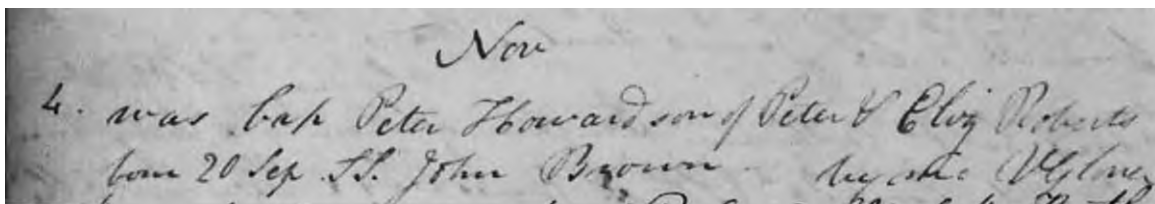 Nov
4. was bap Peter Howard son of Peter & Eliz Roberts
born 20 Sep SS. John Brown by me